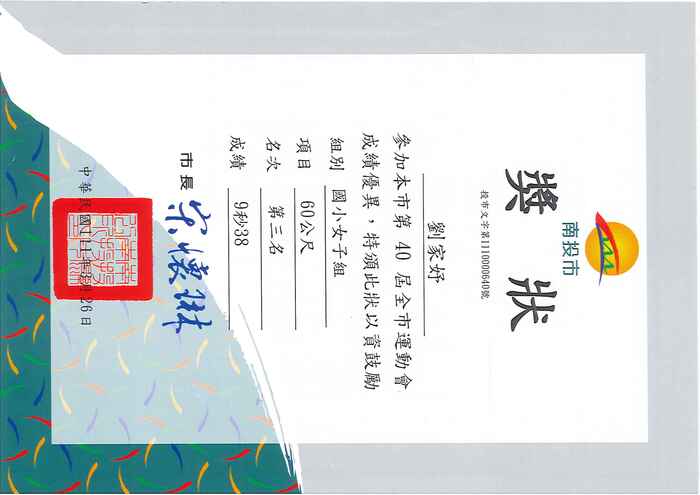 南投市
獎狀
投市文字第1110000640號
劉家妤
參加本市第 40 屆全市運動會
成績優異，特頒此狀以資鼓勵
組別 國小女子組
項目 60公尺
名次 第三名
成績 9秒38
市長 宋懷琳
中華民國111年 月26日